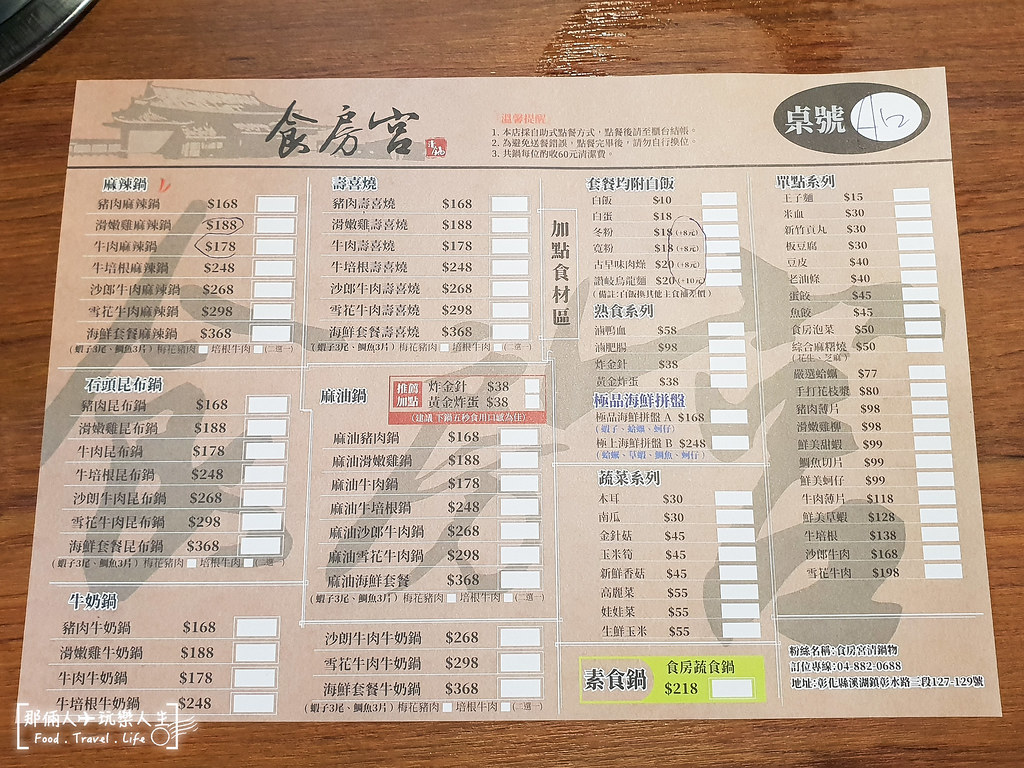 食房宮
溫馨提醒
1. 本店採自助式點餐方式,點餐後請至櫃台結帳。
2. 為避免送餐錯誤,點餐完畢後,請勿自行換位。
3. 共鍋每位酌收60元清潔費。
桌號
麻辣鍋
豬肉麻辣鍋 $168
滑嫩雞麻辣鍋 $188
牛肉麻辣鍋 $178
牛培根麻辣鍋 $248
沙郎牛肉麻辣鍋 $268
雪花牛肉麻辣鍋 $298
海鮮套餐麻辣鍋 $368
(蝦子3尾、鯛魚3片) 梅花豬肉 培根牛肉 (二選一)
石頭昆布鍋
豬肉昆布鍋 $168
滑嫩雞昆布鍋 $188
牛肉昆布鍋 $178
牛培根昆布鍋 $248
沙朗牛肉昆布鍋 $268
雪花牛肉昆布鍋 $298
海鮮套餐昆布鍋 $368
(蝦子3尾、鯛魚3片) 梅花豬肉 培根牛肉 (二選一)
牛奶鍋
豬肉牛奶鍋 $168
滑嫩雞牛奶鍋 $188
牛肉牛奶鍋 $178
牛培根牛奶鍋 $248
壽喜燒
豬肉壽喜燒 $168
滑嫩雞壽喜燒 $188
牛肉壽喜燒 $178
牛培根壽喜燒 $248
沙郎牛肉壽喜燒 $268
雪花牛肉壽喜燒 $298
海鮮套餐壽喜燒 $368
(蝦子3尾、鯛魚3片) 梅花豬肉 培根牛肉 (二選一)
麻油鍋
推薦加點
炸金針 $38
黃金炸蛋 $38
(建議 下鍋五秒食用口感為佳)
麻油豬肉鍋 $168
麻油滑嫩雞鍋 $188
麻油牛肉鍋 $178
麻油牛培根鍋 $248
麻油沙郎牛肉鍋 $268
麻油雪花牛肉鍋 $298
麻油海鮮套餐 $368
(蝦子3尾、鯛魚3片) 梅花豬肉 培根牛肉 (二選一)
沙朗牛肉牛奶鍋 $268
雪花牛肉牛奶鍋 $298
海鮮套餐牛奶鍋 $368
(蝦子3尾、鯛魚3片) 梅花豬肉 培根牛肉 (二選一)
加點食材區
套餐均附白飯
白飯 $10
白蛋 $18
冬粉 $18 (+8元)
寬粉 $18 (+8元)
古早味肉燥 $20 (+8元)
讚岐烏龍麵 $20 (+10元)
(備註:白飯換其他主食補差價)
熟食系列
滷鴨血 $58
滷肥腸 $98
炸金針 $38
黃金炸蛋 $38
極品海鮮拼盤
極品海鮮拼盤 A $168
(蝦子、蛤蠣、蚵仔)
極上海鮮拼盤 B $248
(蛤蠣、草蝦、鯛魚、蚵仔)
蔬菜系列
木耳 $30
南瓜 $30
金針菇 $45
玉米筍 $45
新鮮香菇 $45
高麗菜 $55
娃娃菜 $55
生鮮玉米 $55
素食鍋
食房蔬食鍋
$218
單點系列
王子麵 $15
米血 $30
新竹貢丸 $30
板豆腐 $30
豆皮 $40
老油條 $40
蛋餃 $45
魚餃 $45
食房泡菜 $50
綜合麻糬燒 $50
(花生、芝麻)
嚴選蛤蠣 $77
手打花枝漿 $80
豬肉薄片 $98
滑嫩雞柳 $98
鮮美甜蝦 $99
鯛魚切片 $99
鮮美蚵仔 $99
牛肉薄片 $118
鮮美草蝦 $128
牛培根 $138
沙郎牛肉 $168
雪花牛肉 $198
粉絲名稱:食房宮清鍋物
訂位專線:04-882-0688
地址:彰化縣溪湖鎮彰水路三段127-129號
那倆人玩樂人生
Food . Travel . Life